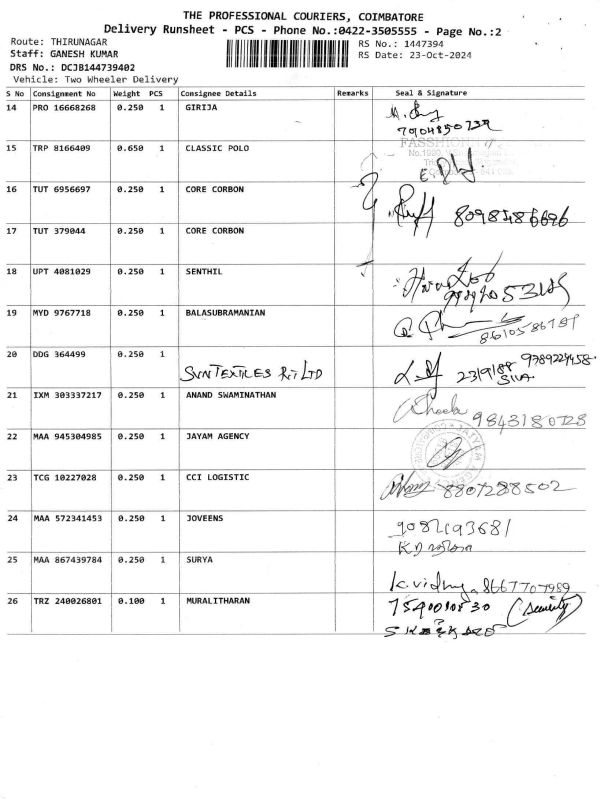 THE PROFESSIONAL COURIERS, COIMBATORE
Delivery Runsheet - PCS - Phone No.:0422-3505555 - Page No.:2
Route: THIRUNAGAR
RS No.: 1447394
Staff: GANESH KUMAR
RS Date: 23-Oct-2024
DRS No.: DCJB144739402
Vehicle: Two Wheeler Delivery
S No Consignment No Weight PCS Consignee Details Remarks Seal & Signature
14 PRO 16668268 0.250 1 GIRIJA
15 TRP 8166409 0.650 1 CLASSIC POLO
FASSHION
16 TUT 6956697 0.250 1 CORE CORBON
8098486696
17 TUT 379044 0.250 1 CORE CORBON
18 UPT 4081029 0.250 1 SENTHIL
19 MYD 9767718 0.250 1 BALASUBRAMANIAN
8610586789
20 DDG 364499 0.250 1
SUN TEXTILES PVT LTD
9789229458
SIVA
21 IXM 303337217 0.250 1 ANAND SWAMINATHAN
9843180728
22 MAA 945304985 0.250 1 JAYAM AGENCY
23 TCG 10227028 0.250 1 CCI LOGISTIC
8807288502
24 MAA 572341453 0.250 1 JOVEENS
25 MAA 867439784 0.250 1 SURYA
K.vidhy 8667707989
26 TRZ 240026801 0.100 1 MURALITHARAN
(security)